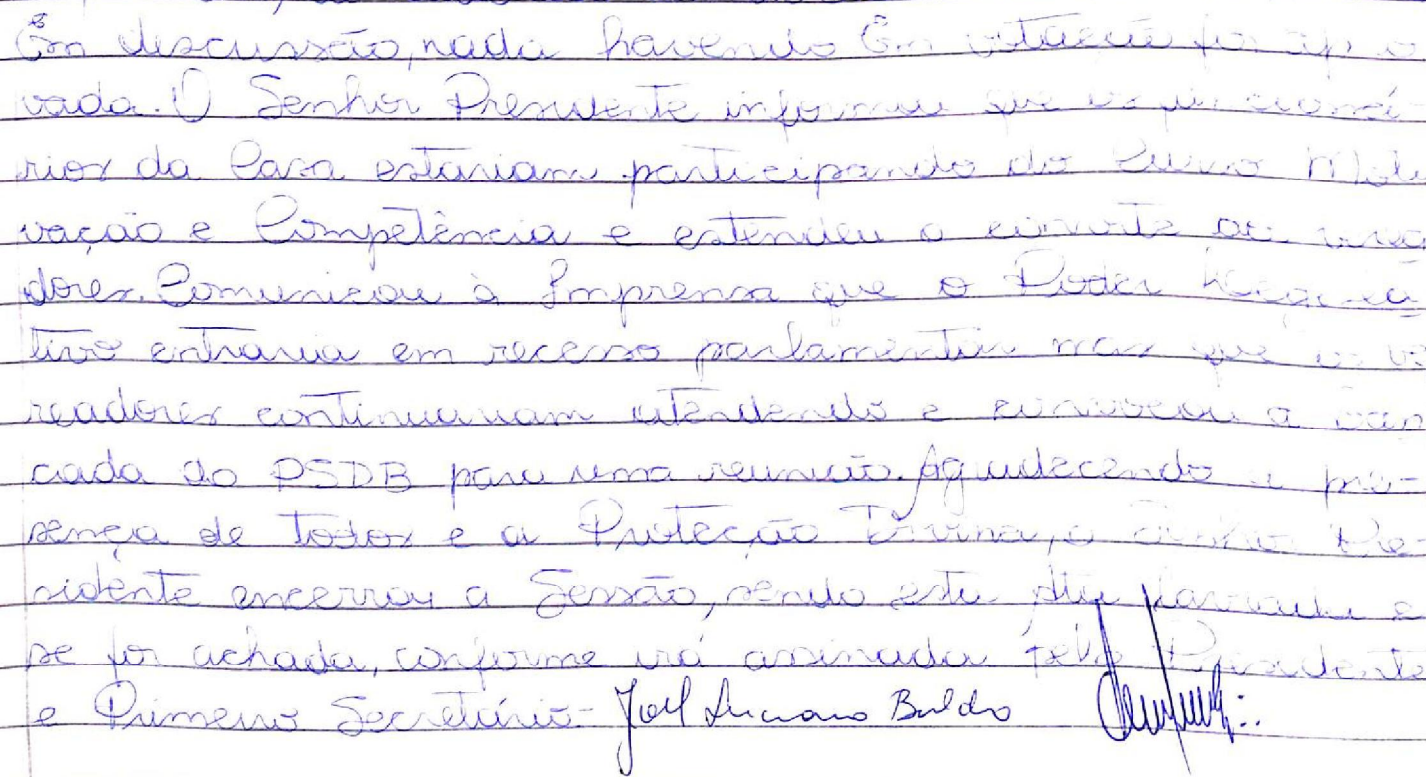 Em discussão, nada havendo Em votação foi apro
vada. O Senhor Presidente informou que os funcioná-
rios da Casa estariam participando do Curso Moti
vação e Competência e estendeu o convite aos verea
dores. Comunicou à Imprensa que o Poder Legisla
tivo entraria em recesso parlamentar mas que os ve
readores continuariam atendendo e convocou a ban
cada do PSDB para uma reunião. Agradecendo a pre-
sença de todos e a Proteção Divina, o Senhor Pre-
sidente encerrou a Sessão, sendo esta Ata lavrada e
se for achada, conforme irá assinada pelo Presidente
e Primeiro Secretário- Joel Luciano